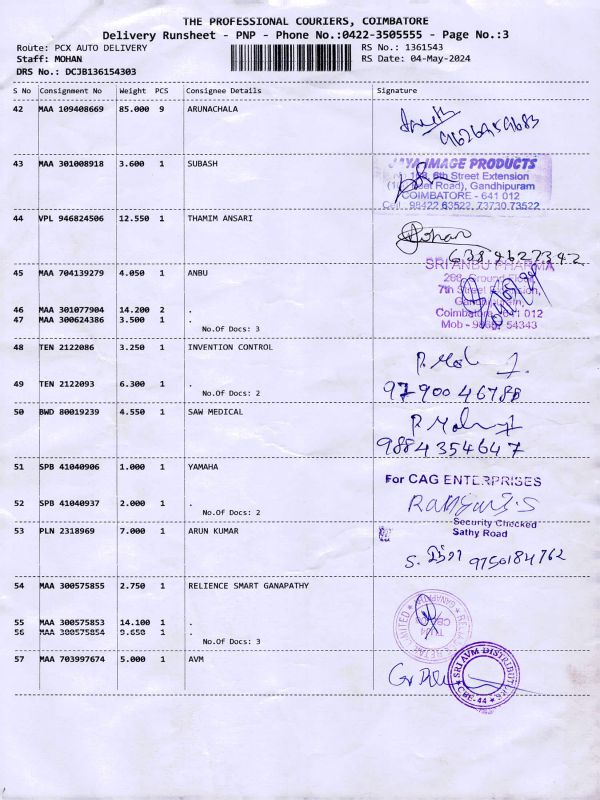 THE PROFESSIONAL COURIERS, COIMBATORE
Delivery Runsheet - PNP - Phone No.:0422-3505555 - Page No.:3
Route: PCX AUTO DELIVERY RS No.: 1361543
Staff: MOHAN RS Date: 04-May-2024
DRS No.: DCJB136154303
S No Consignment No Weight PCS Consignee Details Signature
42 MAA 109408669 85.000 9 ARUNACHALA
9626959683
43 MAA 301008918 3.600 1 SUBASH
JAYA IMAGE PRODUCTS
6th Street Extension
Road), Gandhipuram
COIMBATORE - 641 012
Cell : 98422 63522, 73730 73522
44 VPL 946824506 12.550 1 THAMIM ANSARI
6384627342
45 MAA 704139279 4.050 1 ANBU
SRI ANBU PHARMA
268, Ground Floor
7th Street Extension,
Coimbatore 641 012
Mob - 54343
46 MAA 301077904 14.200 2 .
47 MAA 300624386 3.500 1 .
No.Of Docs: 3
48 TEN 2122086 3.250 1 INVENTION CONTROL
49 TEN 2122093 6.300 1 .
9790046788
No.Of Docs: 2
50 BWD 80019239 4.550 1 SAW MEDICAL
9884354647
51 SPB 41040906 1.000 1 YAMAHA
For CAG ENTERPRISES
52 SPB 41040937 2.000 1 .
No.Of Docs: 2
Security Checked
Sathy Road
53 PLN 2318969 7.000 1 ARUN KUMAR
9750184762
54 MAA 300575855 2.750 1 RELIENCE SMART GANAPATHY
55 MAA 300575853 14.100 1 .
56 MAA 300575854 9.650 1 .
No.Of Docs: 3
57 MAA 703997674 5.000 1 AVM
SRI AVM DISTRIBUTORS
CBE-44